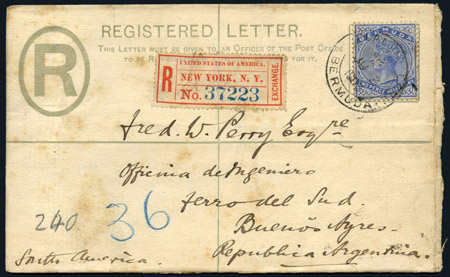 REGISTERED LETTER.
THIS LETTER MUST BE GIVEN TO AN OFFICER OF THE POST OFFICE
TO BE RE FOR IT.
R
UNITED STATES OF AMERICA.
R
NEW YORK, N. Y.
No. 37223
EXCHANGE.
BERMUDA
BERMUDA
Fred. W. Perry Esqre
Officina de Ingeniero
Ferro del Sud.
Buenos Ayres.
Republica Argentina.
240
36
South America.